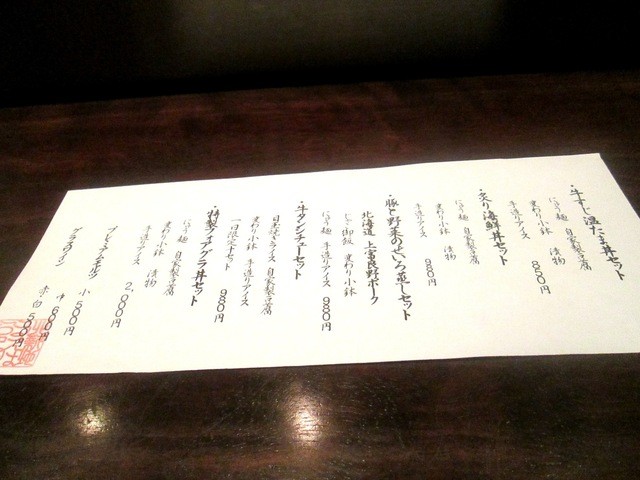 ・牛すじ温たま丼セット
にゅう麺 自家製豆腐
変わり小鉢 漬物
手造りアイス 880円
・炙り海鮮丼セット
にゅう麺 自家製豆腐
変わり小鉢 漬物
手造りアイス 980円
・豚と野菜のせいろ蒸しセット
北海道 上富良野ポーク
御飯 変わり小鉢
にゅう麺 手造りアイス 980円
・牛タンシチューセット
自家製豆腐
変わり小鉢 手造りアイス
980円
特製フォアグラ丼セット
にゅう麺 自家製豆腐
変わり小鉢 漬物
手造りアイス 2,000円
プレミアムモルツ 小 500円
中 600円
グラスワイン 赤・白 500円